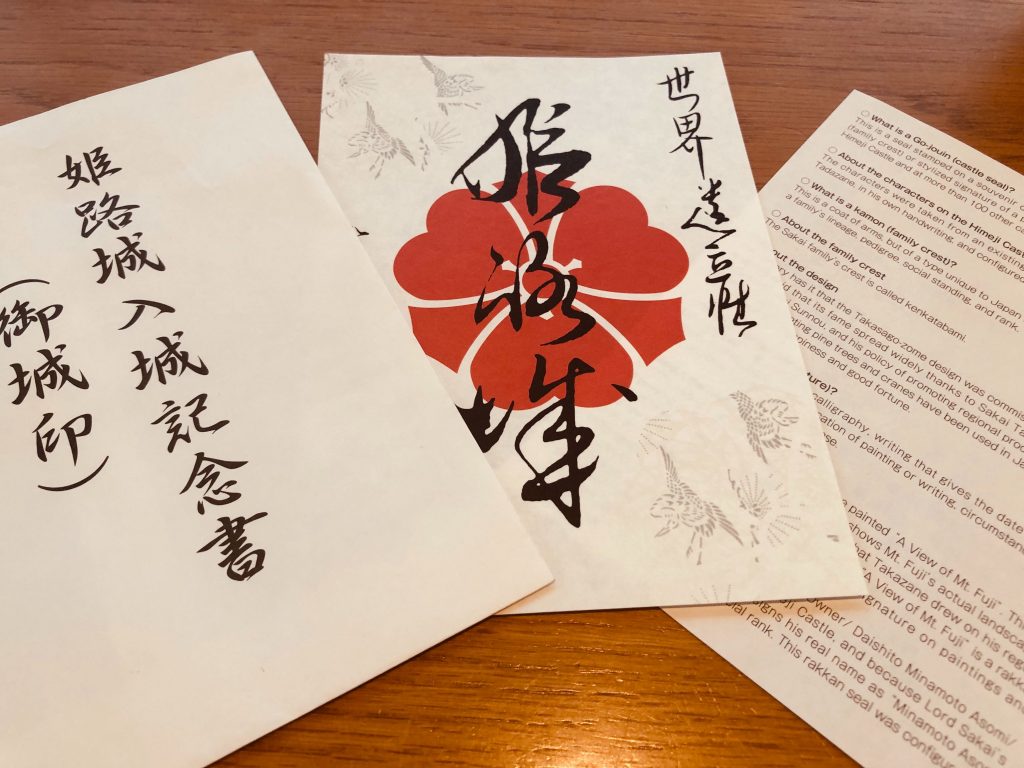 姫路城入城記念書
(御城印)
世界遺産
姫路城
○ What is a Go-jouin (castle seal)?
This is a seal stamped on a souvenir
(family crest) or stylized signature of a
Himeji Castle and at more than 100 other
○ About the characters on the Himeji
The characters were taken from an existing
Tadazane, in his own handwriting, and configured
○ What is a kamon (family crest)?
This is a coat of arms, but of a type unique to Japan
a family's lineage, pedigree, social standing, and rank.
○ About the family crest
The Sakai family's crest is called kenkatabami.
the design
has it that the Takasago-zome design was
that its fame spread widely thanks to Sakai
Sunnou, and his policy of promoting regional
pine trees and cranes have been used in
and good fortune.
calligraphy, writing that gives the date
of painting or writing,
painted "A View of Mt. Fuji".
shows Mt. Fuji's actual
that Takazane drew on his
"A View of Mt. Fuji" is a
signature on paintings and
Owner/ Daishito Minamoto Asomi/
Castle, and because Lord Sakai's
signs his real name as "Minamoto
rank. This rakkan seal was